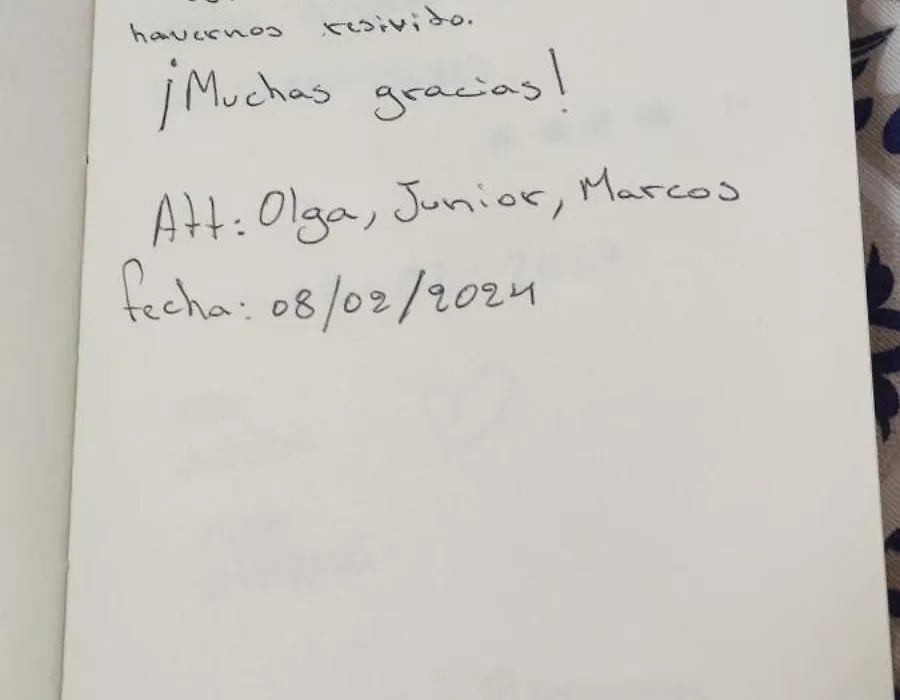 havernos resivido.
¡Muchas gracias!
Att: Olga, Junior, Marcos
fecha: 08/02/2024